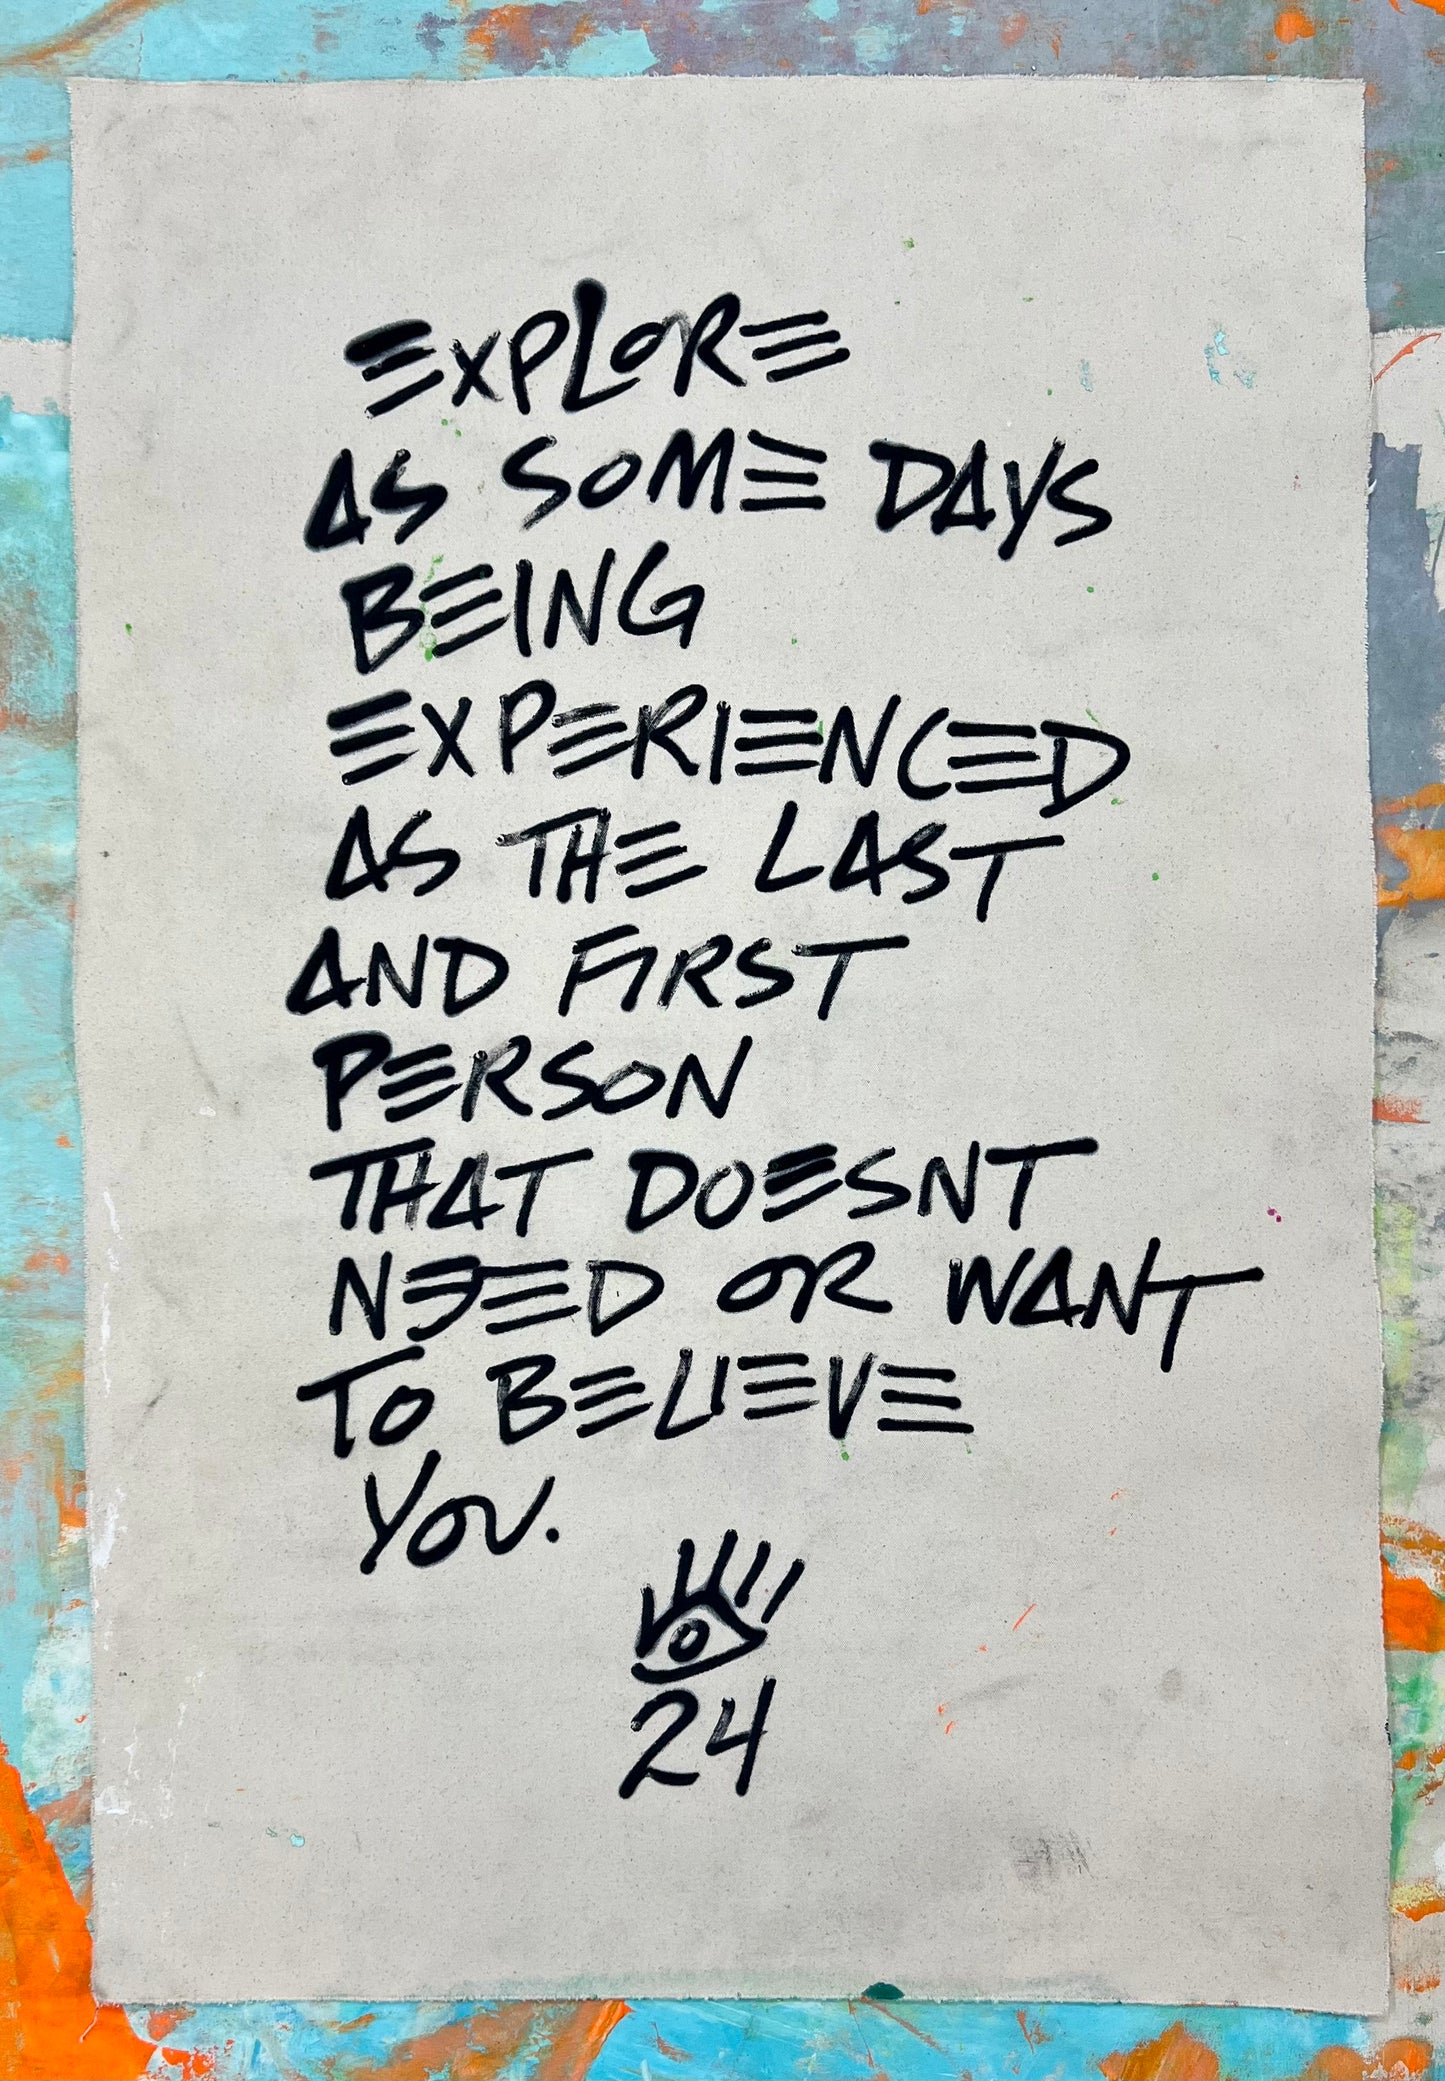 EXPLORE
AS SOME DAYS
BEING
EXPERIENCED
AS THE LAST
AND FIRST
PERSON
THAT DOESNT
NEED OR WANT
TO BELIEVE
YOU.
24